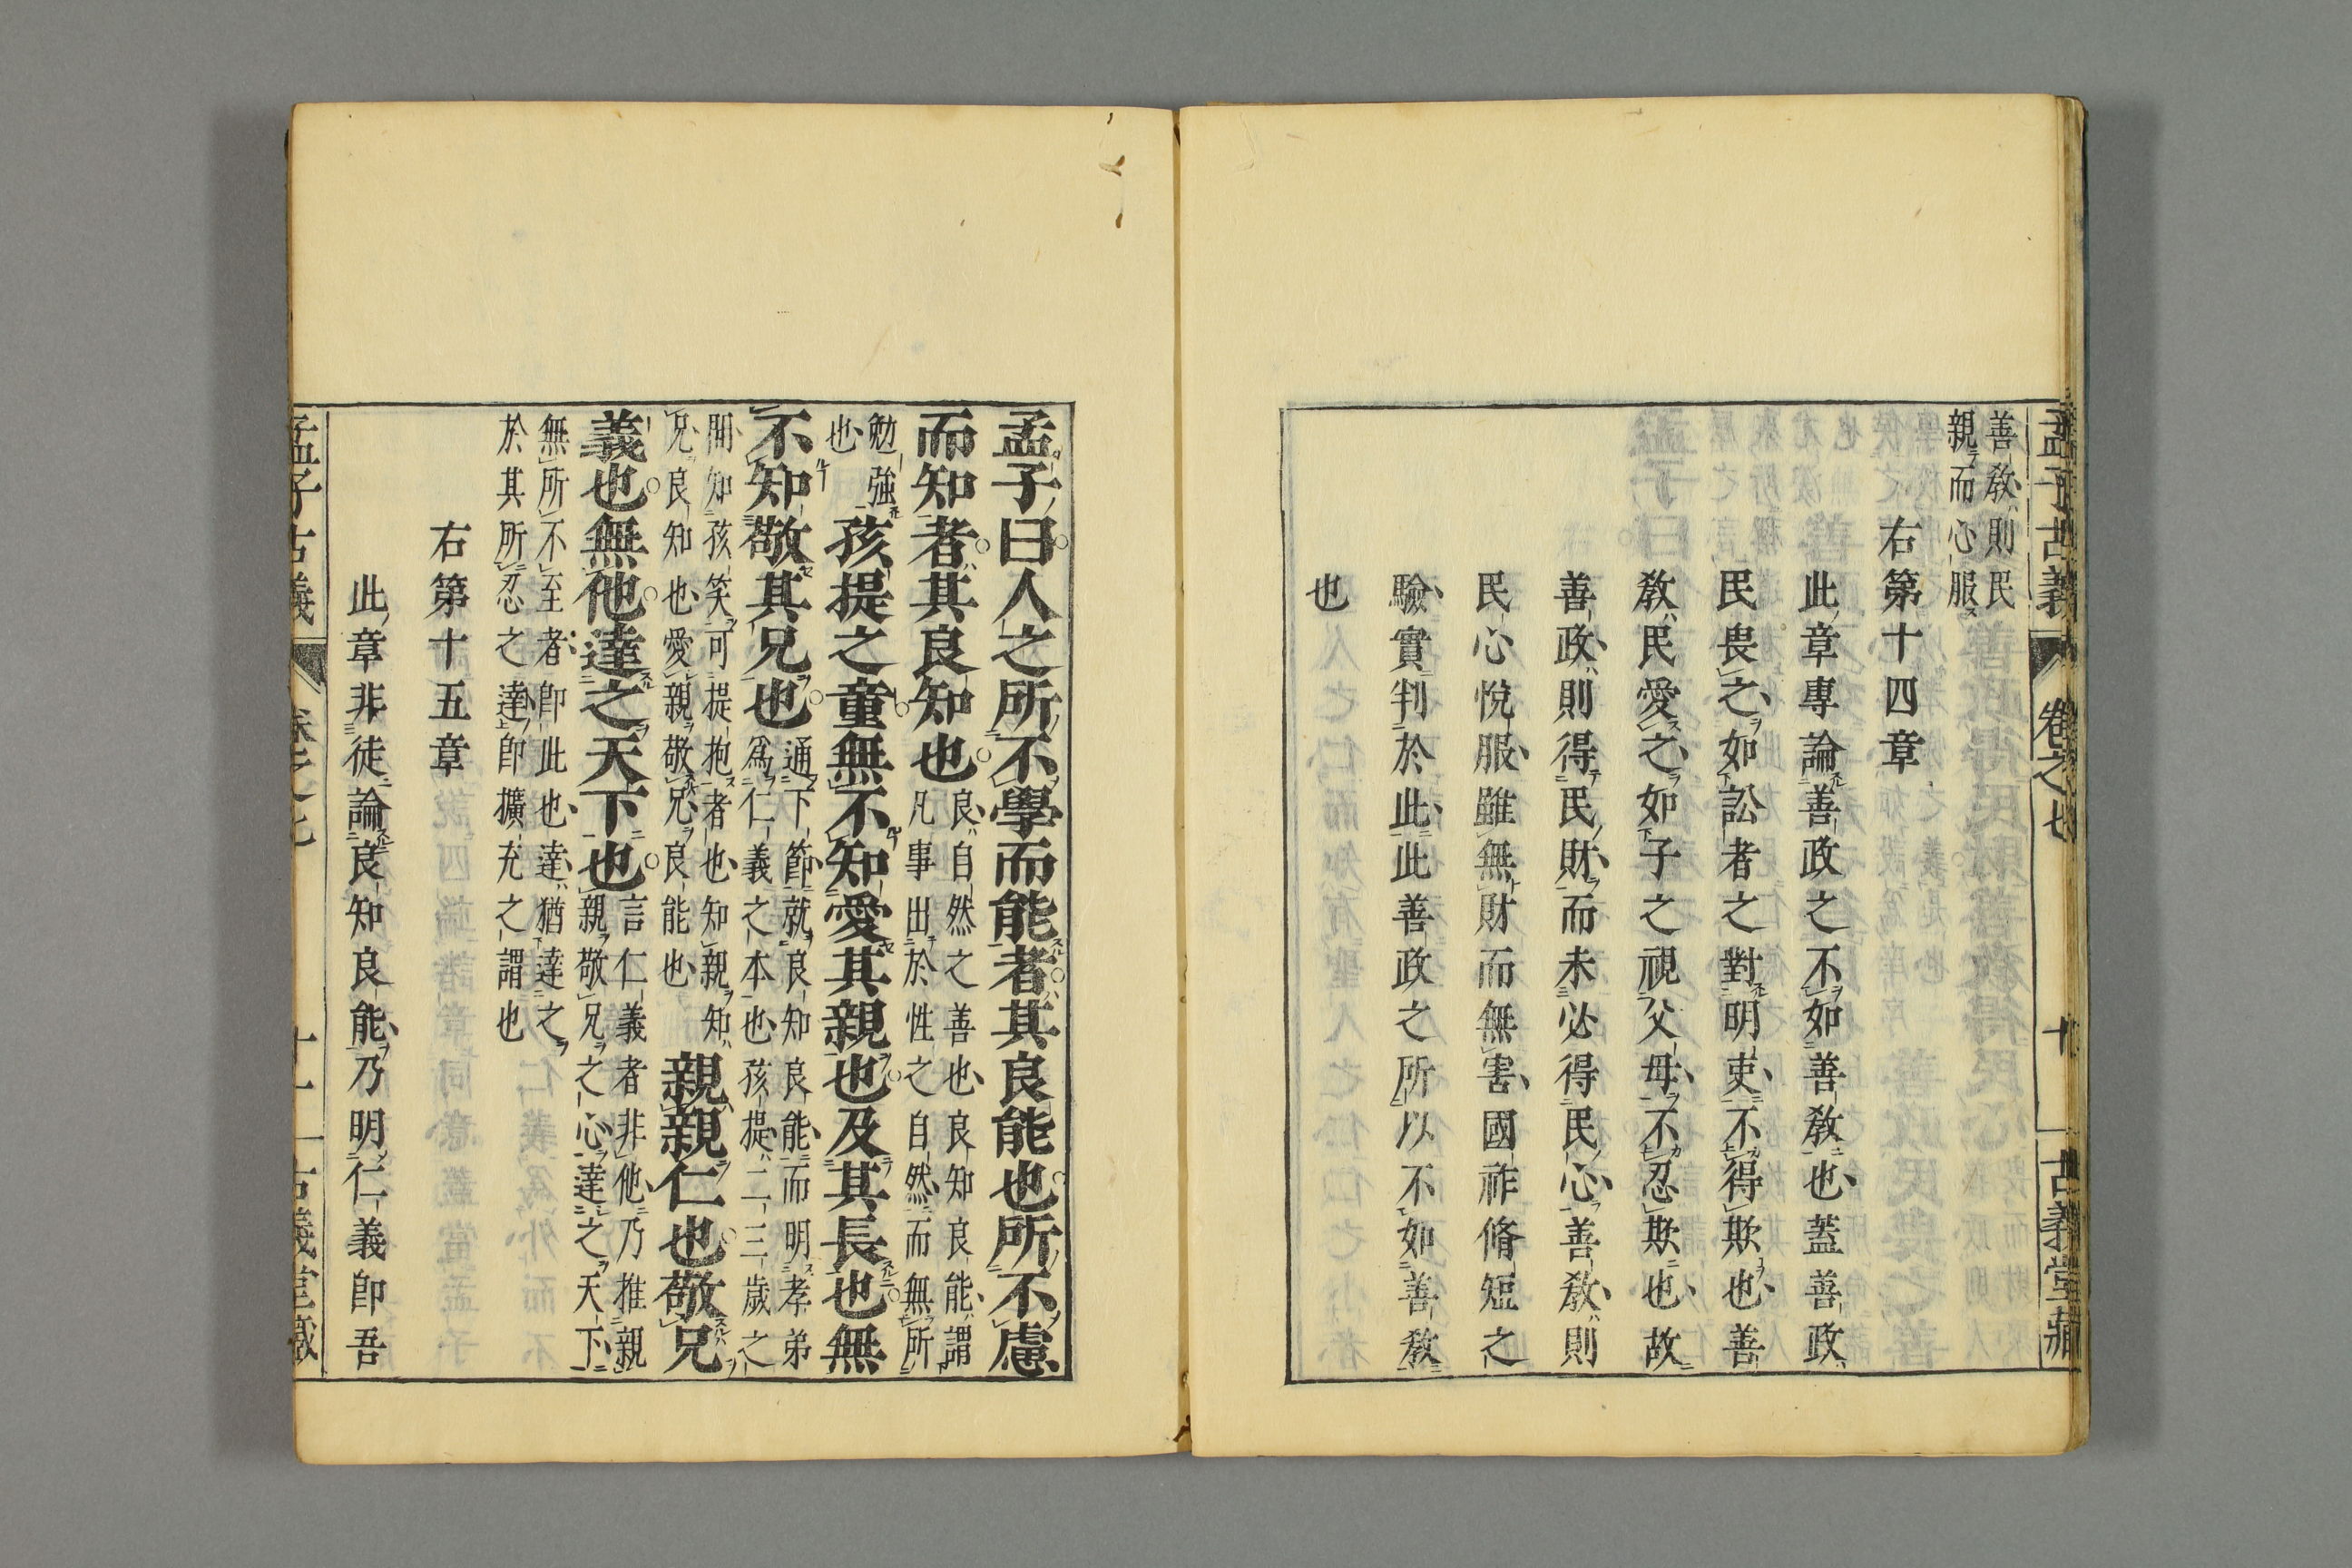 孟子古義 卷之七 十 古義堂藏
善教則民
親而心服
右第十四章
此章專論善政之不如善教也蓋善政
民畏之如訟者之對明吏不得欺也善
教民愛之如子之視父母不忍欺也故
善政則得民財而未必得民心善教則
民心悅服雖無財而無害國祚脩短之
驗實判於此此善政之所以不如善教
也
孟子曰人之所不學而能者其良能也所不慮
而知者其良知也
良自然之善也良知良能謂
凡事出於性之自然而無所
勉強
也
孩提之童無不知愛其親也及其長也無
不知敬其兄也
通下節就良知良能而明孝弟
為仁義之本也孩提二三歲之
間知孩笑可提抱者也知親知
兄良知也愛親敬兄良能也
親親仁也敬兄
義也無他達之天下也
言仁義者非他乃推親
親敬兄之心達之天下
無所不至者卽此也達猶達之
於其所忍之達卽擴充之謂也
右第十五章
此章非徒論良知良能乃明仁義卽吾
孟子古義 卷之七 十一 古義堂藏